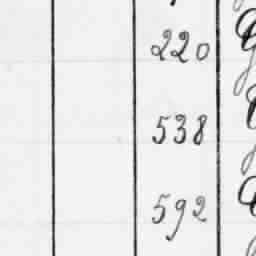 220
538
592